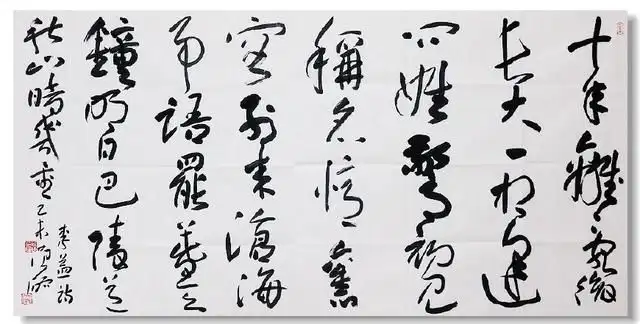 十年離亂後
长大一相逢
问姓驚初見
稱名憶舊
容别来滄海
事語罷暮天
鐘明日巴陵道
秋山幾重
李益诗
乙未